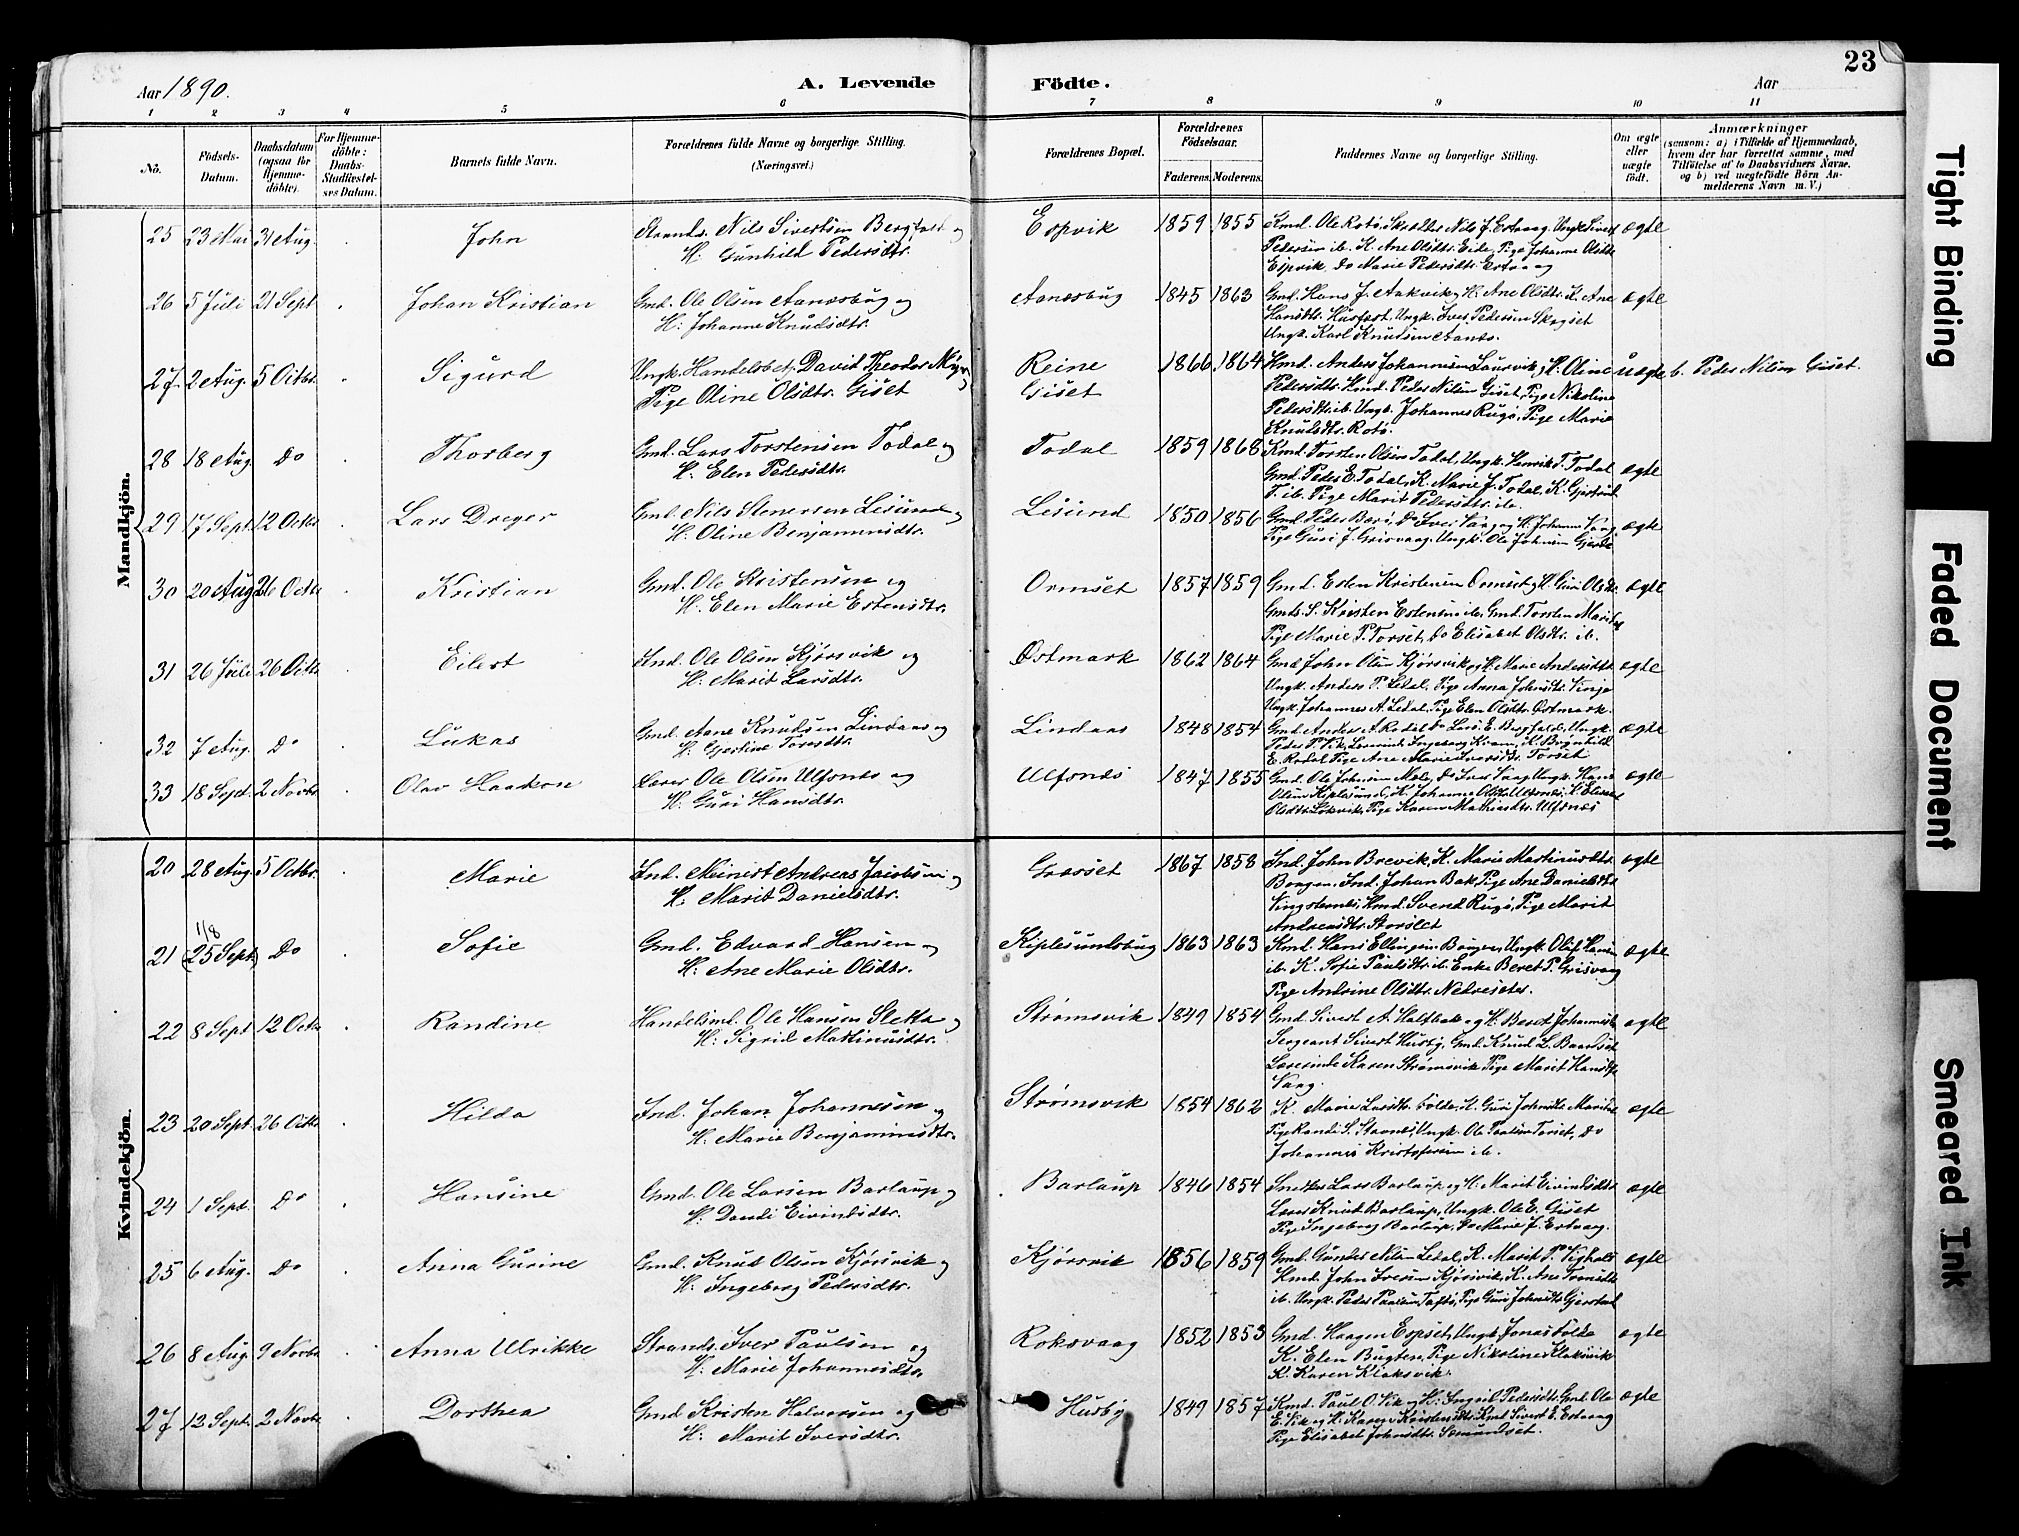 23
Aar 1890.
A. Levende
Födte.
Aar
1 2 3 4 5 6 7 8 9 10 11
No.
Födsels-
Datum.
Daabsdatum
(ogsaa for
Hjemme-
döbte).
For Hjemme-
döbte:
Daabs-
Stadfæstel-
ses Datum.
Barnets fulde Navn.
Forældrenes fulde Navne og borgerlige Stilling.
(Næringsvei.)
Forældrenes Bopæl.
Forældrenes
Födselsaar.
Faderens. Moderens.
Faddernes Navne og borgerlige Stilling.
Om ægte
eller
uægte
födt.
Anmærkninger
(saasom: a) i Tilfælde af Hjemmedaab,
hvem der har forrettet samme, med
Tilföielse af to Daabsvidners Navne,
og b) ved uægtefödte Börn An-
melderens Navn m. V.)
Mandkjön.
25 23 Mai 31 Aug John Strands. Nils Sivertsen Bergfald og
H: Gunhild Pedersdtr. Espvik 1859 1855 ægte
26 5 Juli 21 Sept Johan Kristian Gmd. Ole Olsen Aanæsbug og
H: Johanne Knudsdtr. Aanæsbug 1845 1863 Gmd. Hans J. Aakvik, H. Ane Olsdtr. K. Ane
Hansdtr. Husfast, Ungk. Iver Pedersen Skogset
Ungk. Karl Knudsen Aanes. ægte
27 2 Aug. 5 Octbr. Sigurd Ungk. Handelsbet. David Theodor
Pige Oline Olsdtr. Giset Reine
Giset 1866 1864 Hmd. Anders Johannesen Laurvik, H. Oline
Pedersdtr. Hmd. Peder Nilsen Giset, Pige Nikoline
Pedersdtr. ib. Ungk. Johannes Rugø, Pige Marie
Knudsdtr. Rotø. Uægte b. Peder Nilsen Giset.
28 18 Aug. Do Thorberg Gmd. Lars Torstensen Todal og
H. Elen Pedersdtr. Todal 1859 1868 Kmd. Torsten Olsen Todal, Ungk. Henrik T. Todal
Gmd. Peder E. Todal, K. Marie J. Todal, K. Gjertrud
T. ib. Pige Marit Pedersdtr. ib. ægte
29 17 Sept. 12 Octbr Lars Dreyer Gmd. Nils Stenersen Lesund og
H. Oline Benjaminsdtr. Lesund 1850 1856 Gmd. Peder Barø, Do Iver Vaag og H. Johanna Vaag
Pige Guri J. Grisvaag. Ungk. Ole Johnsen Gjerde ægte
30 20 Aug 26 Octbr Kristian Gmd. Ole Kristensen og
H. Elen Marie Estensdtr. Ormset 1857 1859 Gmd. Esten Kristensen Ormset og H. Guri Olsdtr.
Gmds. S. Kristen Estensen ib. Gmd. Torsten
Pige Marie P. Torset, Do Elisabet Olsdtr. ib. ægte
31 26 Juli 26 Octbr Eilert Ind. Ole Olsen Kjørsvik og
H. Marit Larsdtr. Østmark 1862 1864 Gmd John Olsen Kjørsvik og H. Marie Andersdtr
Ungk. Anders P. Ledal, Pige Anna Johnsdtr. Vinje
Ungk. Johannes A. Ledal, Pige Elen Olsdtr. Østmark. ægte
32 7 Aug. Do Lukas Gmd. Aane Knudsen Lindaas og
H. Gjertine Toresdtr. Lindaas 1848 1854 Gmd Anders A Rodal Do Lars E. Bergfald, Ungk.
Peder P. Vik, Lærerinde Ingeborg
E. Rodal Pige Ane Marie Iversdtr. Torset ægte
33 18 Sept. 2 Novbr. Olav Haakon Lærer Ole Olsen Ulfsnes og
H. Guri Hansdtr. Ulfsnes 1847 1855 Gmd. Ole Johnsen Moe, Do Iver Vaag, Ungk. Hans
Olsen Kiplesund, K. Johanna Olsdtr Ulfsnes, K. Elisabet
Olsdtr. Løkvik, Pige Karen Mathisdtr. Ulfsnes ægte
Kvindekjön.
20 28 Aug. 5 Octbr. Marie Ind. Meinert Andreas Jacobsen og
H. Marit Danielsdtr. Græset 1867 1858 Ind. John Brevik, K. Marie Martinusdtr.
Bongen. Ind. Johan Bak, Pige Ane Danielsdtr
Vingsternes, Hmd. Svend Rugø, Pige Marit
Andreasdtr. Storslet ægte
21 1/8 (25 Sept) Do Sofie Gmd. Edvard Hansen og
H. Ane Marie Olsdtr. Kiplesundsbug 1863 1863 Kmd. Hans Ellingsen Bongen, Ungk. Oluf Hansen
ib. K. Sofie Paulsdtr. ib. Enke Beret P. Grisvaag
Pige Andrine Olsdtr. Nedreseter. ægte
22 8 Sept 12 Octbr Randine Handelsmd. Ole Hansen Sletta og
H. Sigrid Martinusdtr. Strømsvik 1849 1854 Gmd. Sivert A. Halsbak og H. Beret Johannesdtr
Sergeant Sivert Husby, Gmd. Knud L. Baardset
Lærerinde Karen Strømsvik Pige Marit Hansdtr
Vaag. ægte
23 20 Sept. 26 Octbr Hilda Ind. Johan Johannesen og
H. Marie Benjaminsdtr. Strømsvik 1854 1862 K. Marie Larsdtr. Folde, K. Guri Johnsdtr
Pige Randi S. Stavnes, Ungk. Ole Paulsen Torset, Do
Johannes Kristofersen ib. ægte
24 1 Sept. Do Hansine Gmd. Ole Larsen Barlaup og
H. Dordi Eivindsdtr. Barlaup 1846 1854 Smed Lars Barlaup og H. Marit Eivindsdtr.
Lærer Knud Barlaup, Ungk. Ole E. Giset
Pige Ingeborg Barlaup, Do Marie J. Ertvaag. ægte
25 6 Aug. Do Anna Gurine Gmd. Knud Olsen Kjørsvik og
H. Ingeborg Pedersdtr. Kjørsvik 1856 1859 Gmd. Gunder Nilsen Ledal, K. Marit P.
Hmd. John Iversen Kjørsvik, K. Ane Tomasdtr
ib. Ungk. Peder Paulsen Taftø, Pige Guri Johnsdtr. Gjerstad ægte
26 8 Aug. 9 Novbr Anna Ulrikke Strands. Iver Paulsen og
H. Marie Johannesdtr. Roksvaag 1852 1853 Gmd. Haagen Espset, Ungk. Jonas Folde
K. Elen Bugten, Pige Nikoline Klaksvik
K. Karen Klaksvik. ægte
27 12 Sept. 2 Novbr Dorthea Gmd Kristen Halvorsen og
H. Marit Iversdtr. Husby 1849 1857 Kmd. Paul O. Vik og H. Ingril Pedersdtr. Gmd. Ole
E. Vik og H. Karen Kristensdtr. Kmd. Sivert E. Ertvaag
Pige Elisabet Johnsdtr. Semundset. ægte
Tight Binding
Faded Document
Smeared Ink